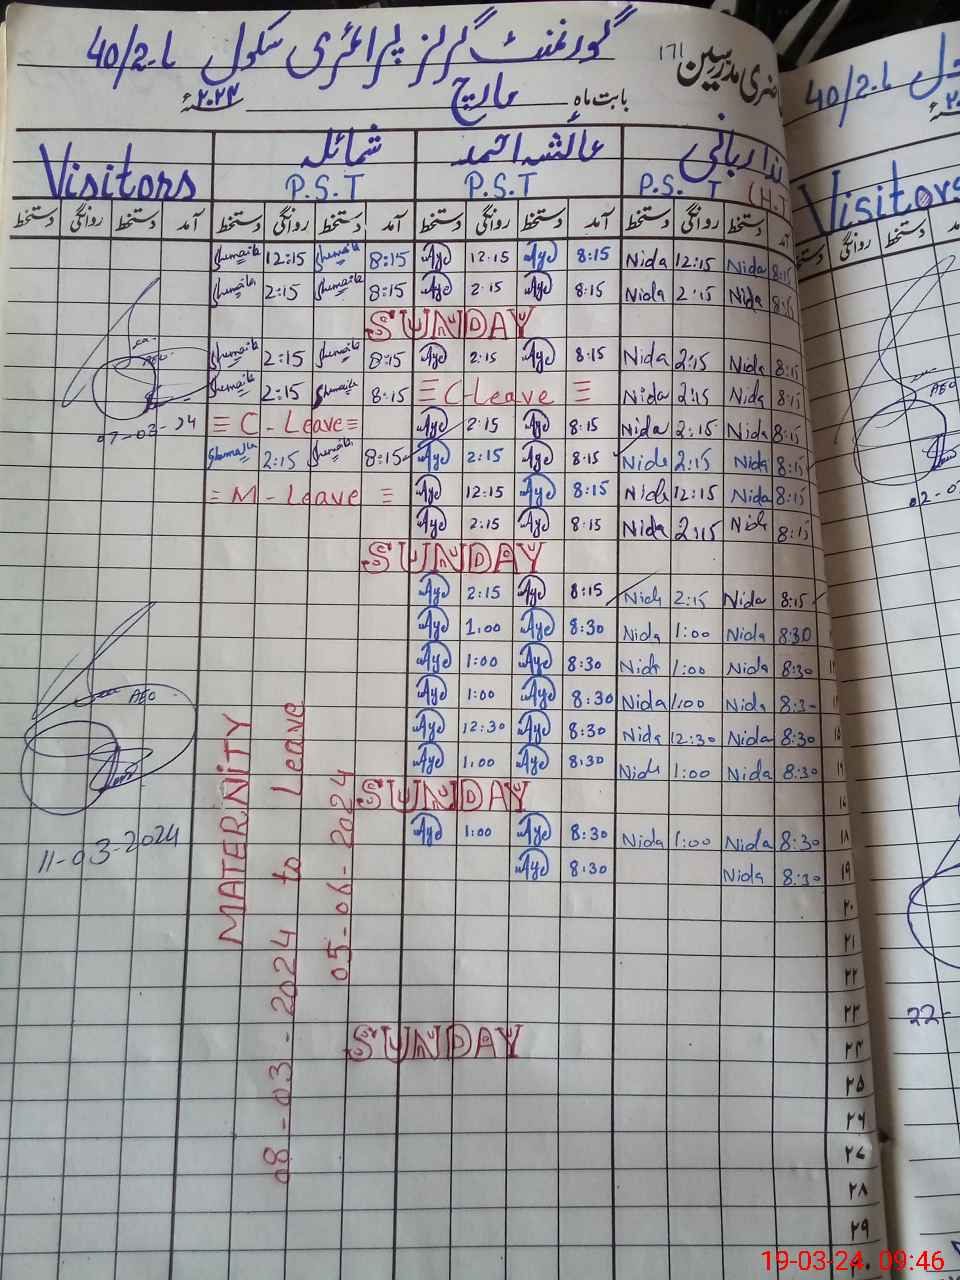 گورنمنٹ گرلز پرائمری سکول 40/2.L
حاضری مدرسین (17)
بابت ماہ مارچ ۲۰۲۴ء
ندا ربانی عائشہ احمد شمائلہ Visitors
P.S.T (H.T P.S.T P.S.T
آمد دستخط روانگی دستخط آمد دستخط روانگی دستخط آمد دستخط روانگی دستخط آمد دستخط روانگی دستخط
Shumaila 12:15 Shumaila 8:15 Aye 12:15 Aye 8:15 Nida 12:15 Nida 8:15
Shumaila 2:15 Shumaila 8:15 Aye 2:15 Aye 8:15 Nida 2:15 Nida 8:15
SUNDAY
Shumaila 2:15 Shumaila 8:15 Aye 2:15 Aye 8:15 Nida 2:15 Nida 8:15
Shumaila 2:15 Shumaila 8:15 C-Leave Nida 2:15 Nida 8:15
C-Leave Aye 2:15 Aye 8:15 Nida 2:15 Nida 8:15
Shumaila 2:15 Shumaila 8:15 Aye 2:15 Aye 8:15 Nida 2:15 Nida 8:15
M-Leave Aye 12:15 Aye 8:15 Nida 12:15 Nida 8:15
Aye 2:15 Aye 8:15 Nida 2:15 Nida 8:15
SUNDAY
Aye 2:15 Aye 8:15 Nida 2:15 Nida 8:15
Aye 1:00 Aye 8:30 Nida 1:00 Nida 8:30
Aye 1:00 Aye 8:30 Nida 1:00 Nida 8:30
Aye 1:00 Aye 8:30 Nida 1:00 Nida 8:30
Aye 12:30 Aye 8:30 Nida 12:30 Nida 8:30
Aye 1:00 Aye 8:30 Nida 1:00 Nida 8:30
SUNDAY
Aye 1:00 Aye 8:30 Nida 1:00 Nida 8:30 ۱۸
Aye 8:30 Nida 8:30 ۱۹
۲۰
۲۱
۲۲
۲۳
SUNDAY ۲۴
۲۵
۲۶
۲۷
۲۸
۲۹
MATERNITY Leave
08-03-2024 to 05-06-2024
AEO
07-03-24
AEO
11-03-2024
40/2.L
Visitors
دستخط روانگی دستخط
AEO
02-0
22-
19-03-24. 09:46